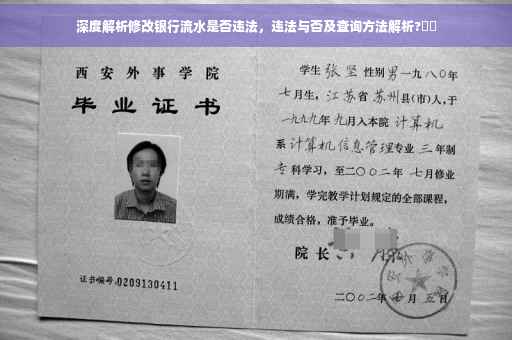 深度解析修改银行流水是否违法，违法与否及查询方法解析?
西安外事学院
毕业证书
证书编号:0209130411
学生 张坚 性别男 一九八〇年
七月生，江苏省 苏州县(市)人，于
一九九九年 九月入本院 计算机
系 计算机信息管理专业 三 年制
专 科学习，至二〇〇二年 七月修业
期满，学完教学计划规定的全部课程，
成绩合格，准予毕业。
院长
二〇〇二年 月 五日